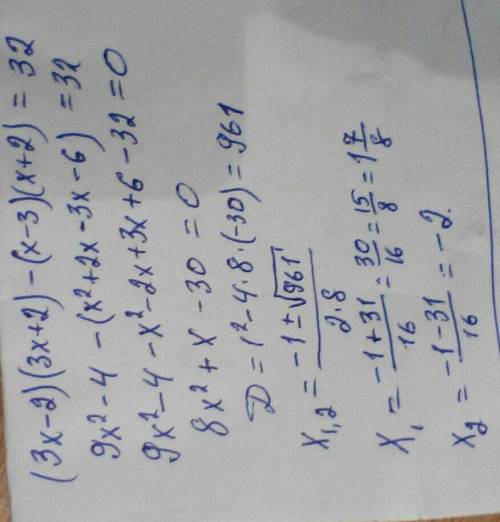 (3x-2)(3x+2)-(x-3)(x+2)=32
9x²-4-(x²+2x-3x-6)=32
9x²-4-x²-2x+3x+6-32=0
8x²+x-30=0
D=1²-4·8·(-30)=961
x₁,₂=(-1±√961)/(2·8)
x₁=(-1+31)/16=30/16=15/8=1 7/8
x₂=(-1-31)/16=-2.